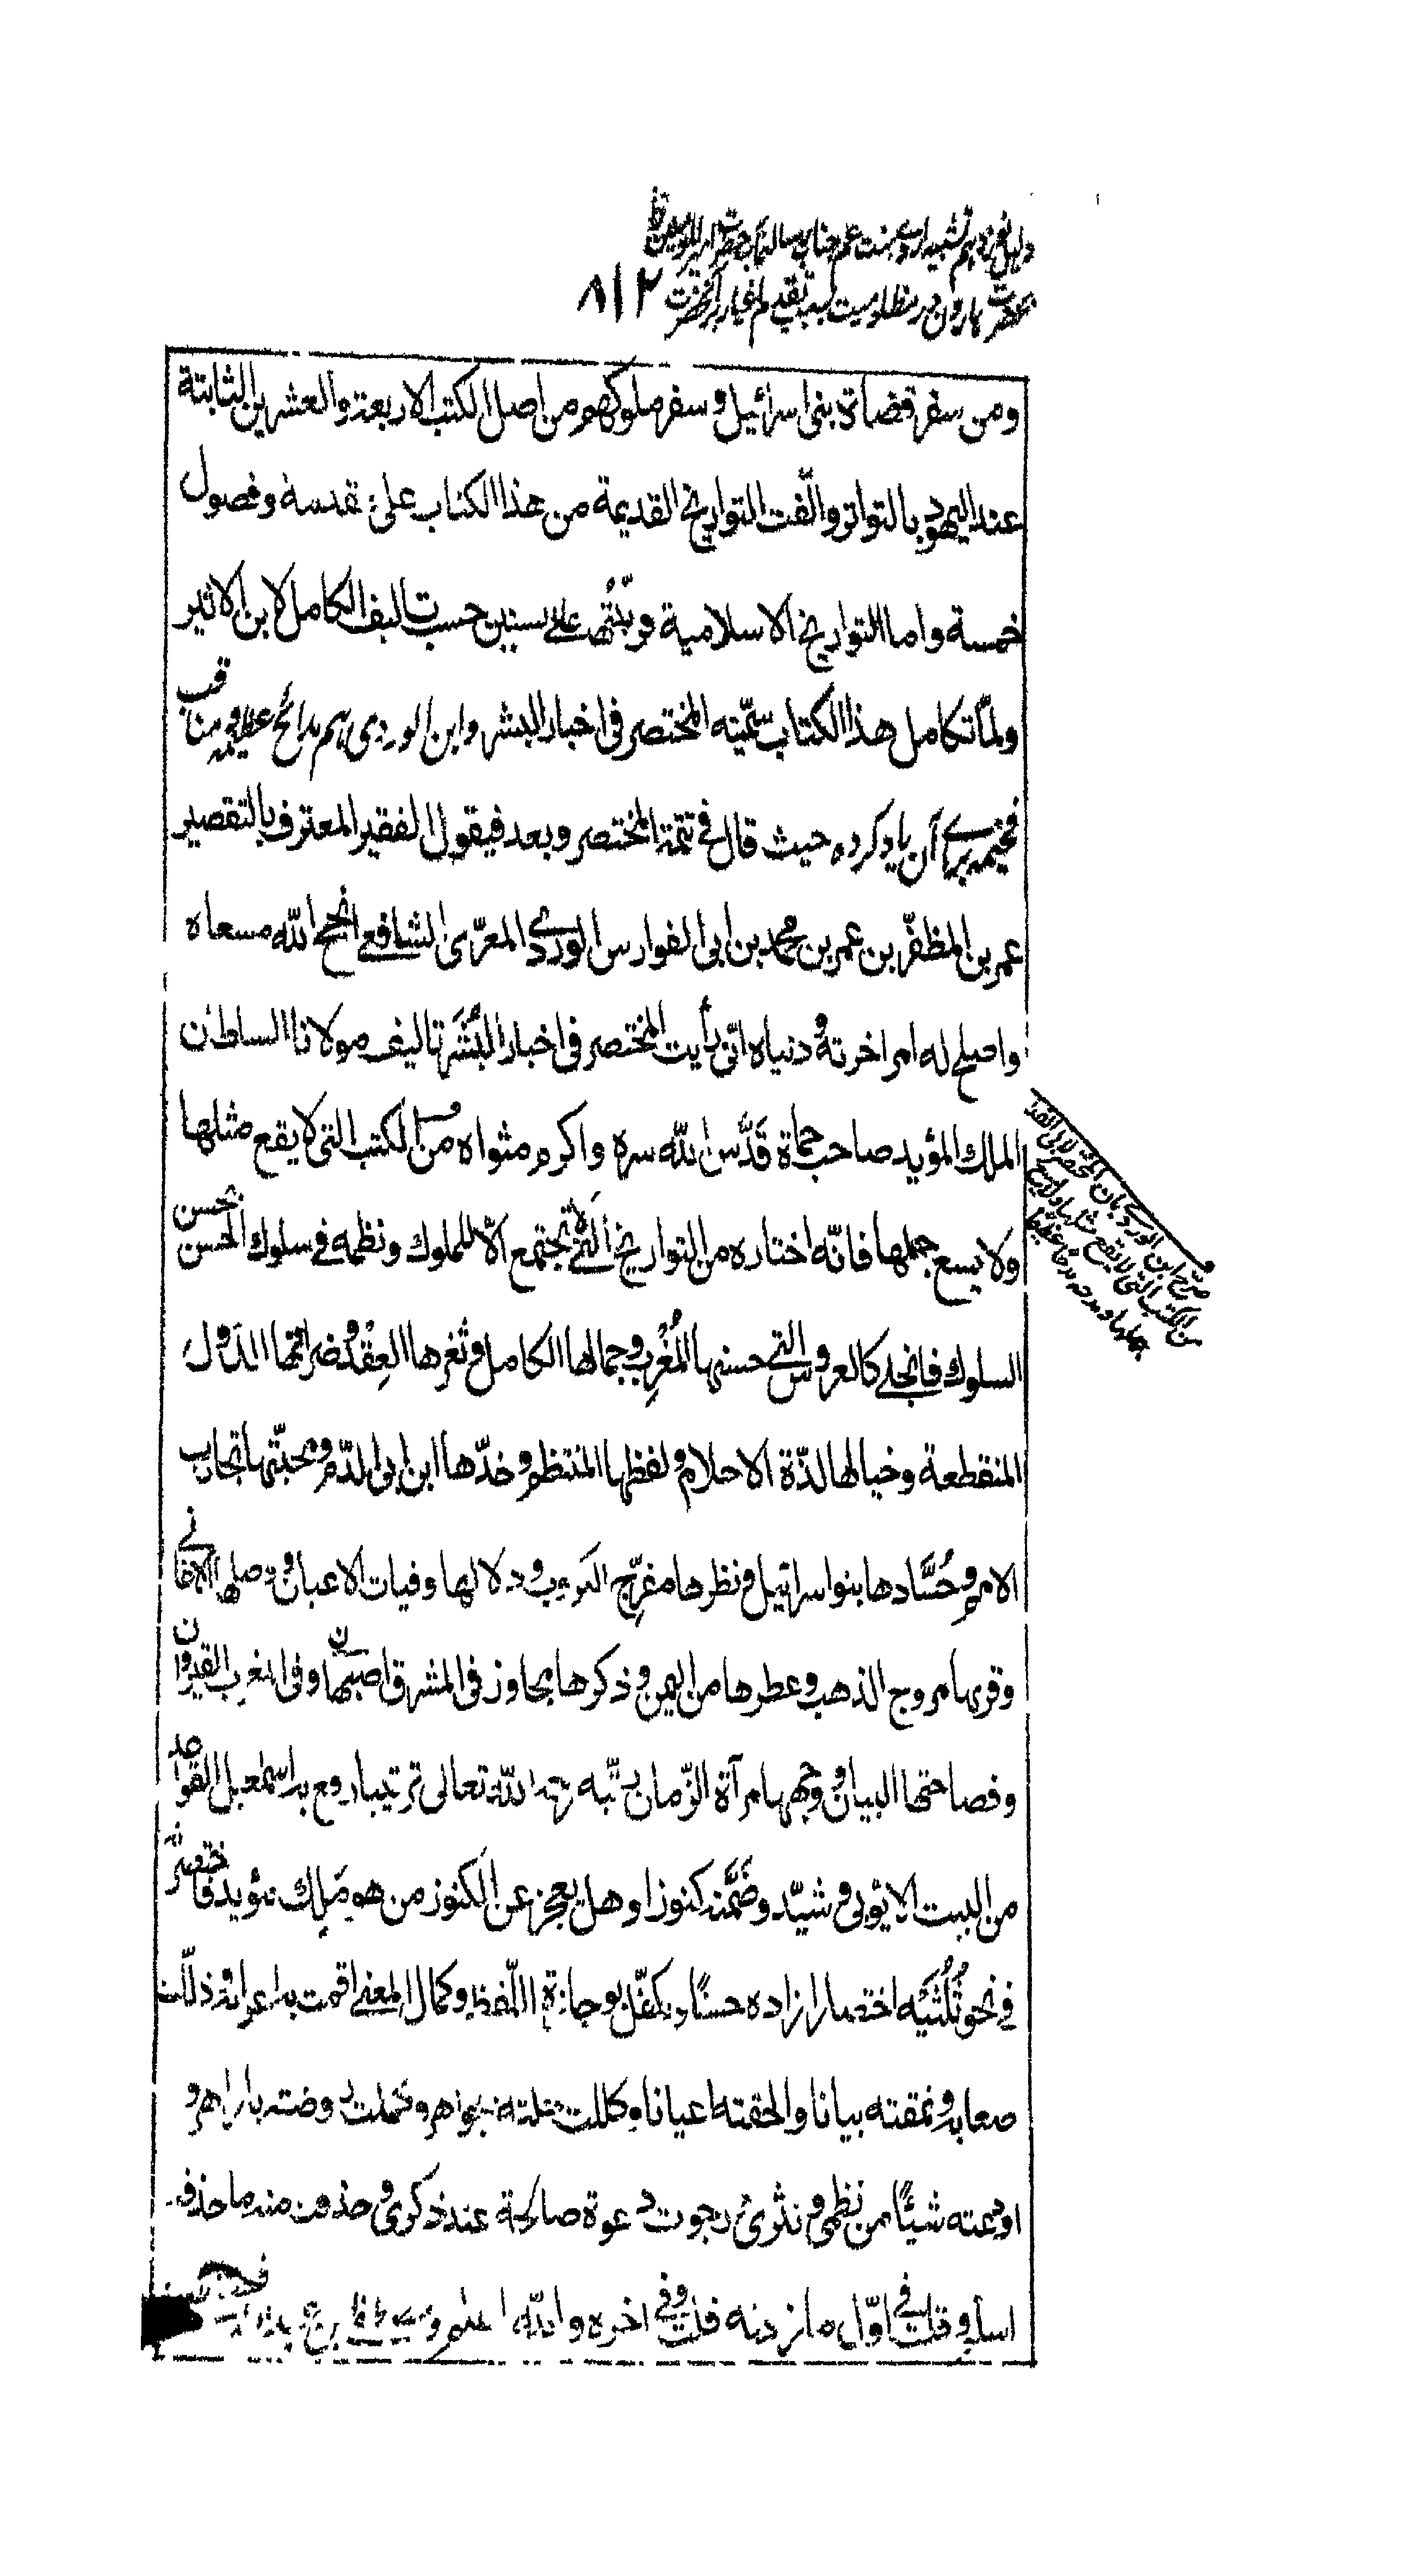 دلیل نوزدهم تشبیه ابو بنت عم جناب رسالتمآب حضرت امیرالمومنین
بحضرت هارون در مظلومیت بسبب تقدم اغیار بر آنحضرت ۸۱۲
ومن سفر قضاة بنی اسرائیل وسفر ملوکهم من اصل الکتب الاربعة والعشرین الثابتة
عند الیهود بالتواتر والّفت التواریخ القدیمة من هذا الکتاب علی مقدمة وفصول
خمسة واما التواریخ الاسلامیة فرتّبتُها علی السنین حسب تالیف الکامل لابن الاثیر
ولمّا تکامل هذا الکتاب سمّیته المختصر فی اخبار البشر وابن الوردی هم مدائح عظیمه ومناقب
فخیمه برای آن یاد کرده حیث قال فی تتمة المختصر وبعد فیقول الفقیر المعترف بالتقصیر
عمر بن المظفّر بن عمر بن محمد بن ابی الفوارس الوردی المعرّی الشافعی انجح الله مسعاه
واصلح له امر اخرته ودنیاه انّی رأیت المختصر فی اخبار البَشَر تالیف مولانا السلطان
الملک المؤید صاحب حماة قَدَّس الله سره واکرم مثواه من الکتب التی لا یقع مثلها
ولا یسع جهلها فانّه اختاره من التواریخ التی لا تجتمع الّا للملوک ونظمه فی سلوک الحسن بحسن
السلوک فانجلی کالعروس التی حسنها المُغْرِب وجمالها الکامل وثغرها العِقْد وضراتها الدّول
المنقطعة وخیالها لذّة الاحلام ولفظها المنتظم وخدّها ابن ابی الدّم ومحبتّها تجارب
الامم وحُسَّادها بنو اسرائیل ونظرها مفرّج الکروب ودلالها وفیات الاعیان ووصلها الاغانی
وقربها مروج الذهب وعطرها من الیمن وذکرها یجاوز فی المشرق اصبهان وفی المغرب القیروان
وفصاحتها البیان ووجهها مرآة الزّمان رتّبه رحمه الله تعالی ترتیبا رفع به اسمعیل القواعد
من البیت الایّوبی وشیّد وضَمَّنه کنوزا وهل یعجز عن الکنوز من هو مَلِک مؤید فاختصرته
فی نحو ثُلُثَیه اختصارا زاده حسنًا وتکفّل بوجازة اللّفظ وکمال المعنی اقمت به اعرابه وذلّلت
صعابه ونمقته بیانا والحقته اعیانا وکللت حلته بجواهر وکملت روضته بازاهر و
اودعته شیئًا من نظمی ونثری رجوت دعوة صالحة عند ذکری وحذفت منه ما حذفه
اسلم وقلت فی اوّل ما زدته قلت وفی اخره والله اعلم
صرّح ابن الوردی بان المختصر لابی الفدا
من الکتب التی لا یقع مثلها ولا یسع
جهلها ومدحه مدحا عظیما